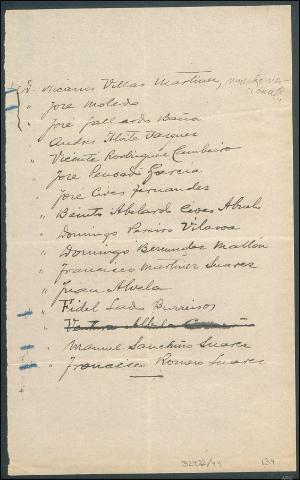 D. Nicanor Villas Martinez, maestro na-
cional,
" José Moledo
" José Gallardo Baña
" Andres Aboita Vazquez
" Vicente Rodriguez Cambeiro
" José Pensado Garcia
" José Cives Fernandez
" Benito Abelardo Cives Abeal
" Domingo Pareiro Vilanova
" Domingo Bermudez Mallón
" Francisco Martinez Suarez
" Juan Abela
" Fidel Lado Barreiros
" Ventura
" Manuel Sanchiño Suarez
" Francisco Romero Suarez
32422/49
134